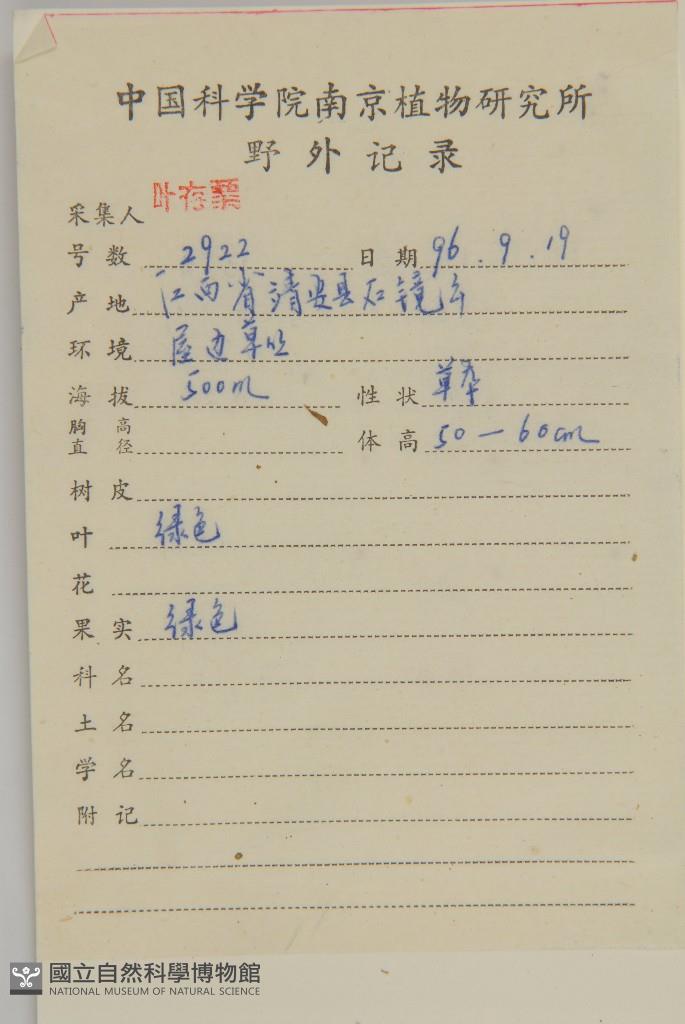 中国科学院南京植物研究所
野外记录
采集人 叶存粟
号数 2922 日期 96.9.19
产地 江西省靖安县石镜
环境 屋边草丛
海拔 500m 性状 草本
胸高直径 体高 50—60cm
树皮
叶 绿色
花
果实 绿色
科名
土名
学名
附记
國立自然科學博物館
NATIONAL MUSEUM OF NATURAL SCIENCE